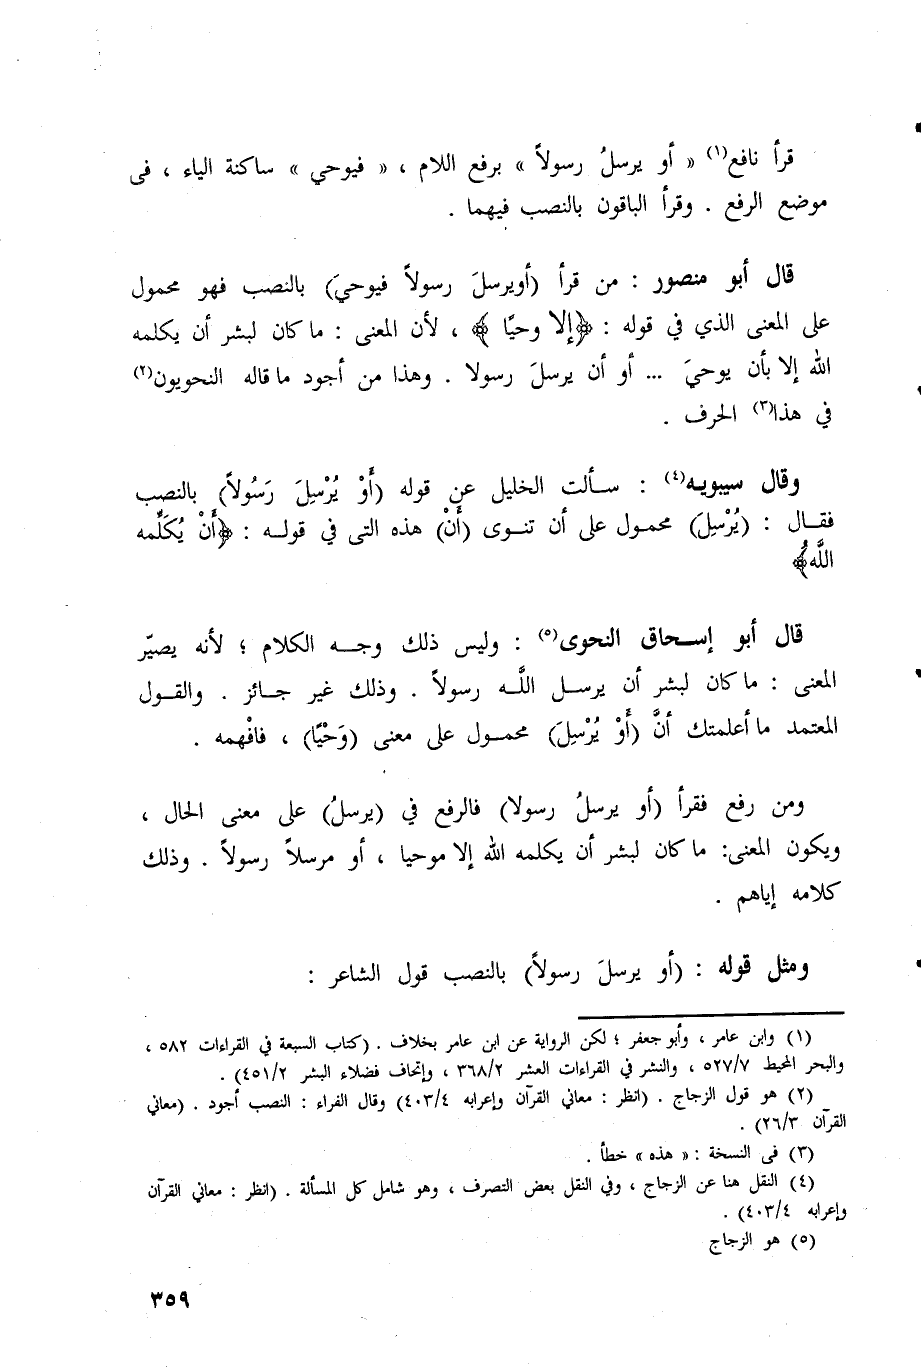 قرأ نافع(١) « أو يرسلُ رسولاً » برفع اللام ، « فيوحي » ساكنة الياء ، فى
موضع الرفع . وقرأ الباقون بالنصب فيهما .
قال أبو منصور : من قرأ (أويرسلَ رسولاً فيوحيَ) بالنصب فهو محمول
على المعنى الذي في قوله : ﴿إلا وحيًا ﴾ ، لأن المعنى : ما كان لبشر أن يكلمه
الله إلا بأن يوحيَ ... أو أن يرسلَ رسولا . وهذا من أجود ما قاله النحويون(٢)
في هذا(٣) الحرف .
وقال سيبويه(٤) : سألت الخليل عن قوله (أَوْ يُرْسِلَ رَسُولاً) بالنصب
فقال : (يُرْسِلَ) محمول على أن تنوى (أَنْ) هذه التى في قوله : ﴿أَنْ يُكَلِّمه
اللَّه﴾
قال أبو إسحاق النحوى(٥) : وليس ذلك وجه الكلام ؛ لأنه يصيّر
المعنى : ما كان لبشر أن يرسل اللَّه رسولاً . وذلك غير جائز . والقول
المعتمد ما أعلمتك أنَّ (أَوْ يُرْسِلَ) محمول على معنى (وَحْيًا) ، فافْهمه .
ومن رفع فقرأ (أو يرسلُ رسولا) فالرفع في (يرسلُ) على معنى الحال ،
ويكون المعنى: ما كان لبشر أن يكلمه الله إلا موحيا ، أو مرسلاً رسولاً . وذلك
كلامه إياهم .
ومثل قوله : (أو يرسلَ رسولاً) بالنصب قول الشاعر :
(١) وابن عامر ، وأبو جعفر ؛ لكن الرواية عن ابن عامر بخلاف . (كتاب السبعة في القراءات ٥٨٢ ،
والبحر المحيط ٥٢٧/٧ ، والنشر في القراءات العشر ٣٦٨/٢ ، وإتحاف فضلاء البشر ٤٥١/٢) .
(٢) هو قول الزجاج . (انظر : معاني القرآن وإعرابه ٤٠٣/٤) وقال الفراء : النصب أجود . (معاني
القرآن ٢٦/٣) .
(٣) فى النسخة : « هذه » خطأ .
(٤) النقل هنا عن الزجاج ، وفي النقل بعض التصرف ، وهو شامل كل المسألة . (انظر : معاني القرآن
وإعرابه ٤٠٣/٤) .
(٥) هو الزجاج
٣٥٩